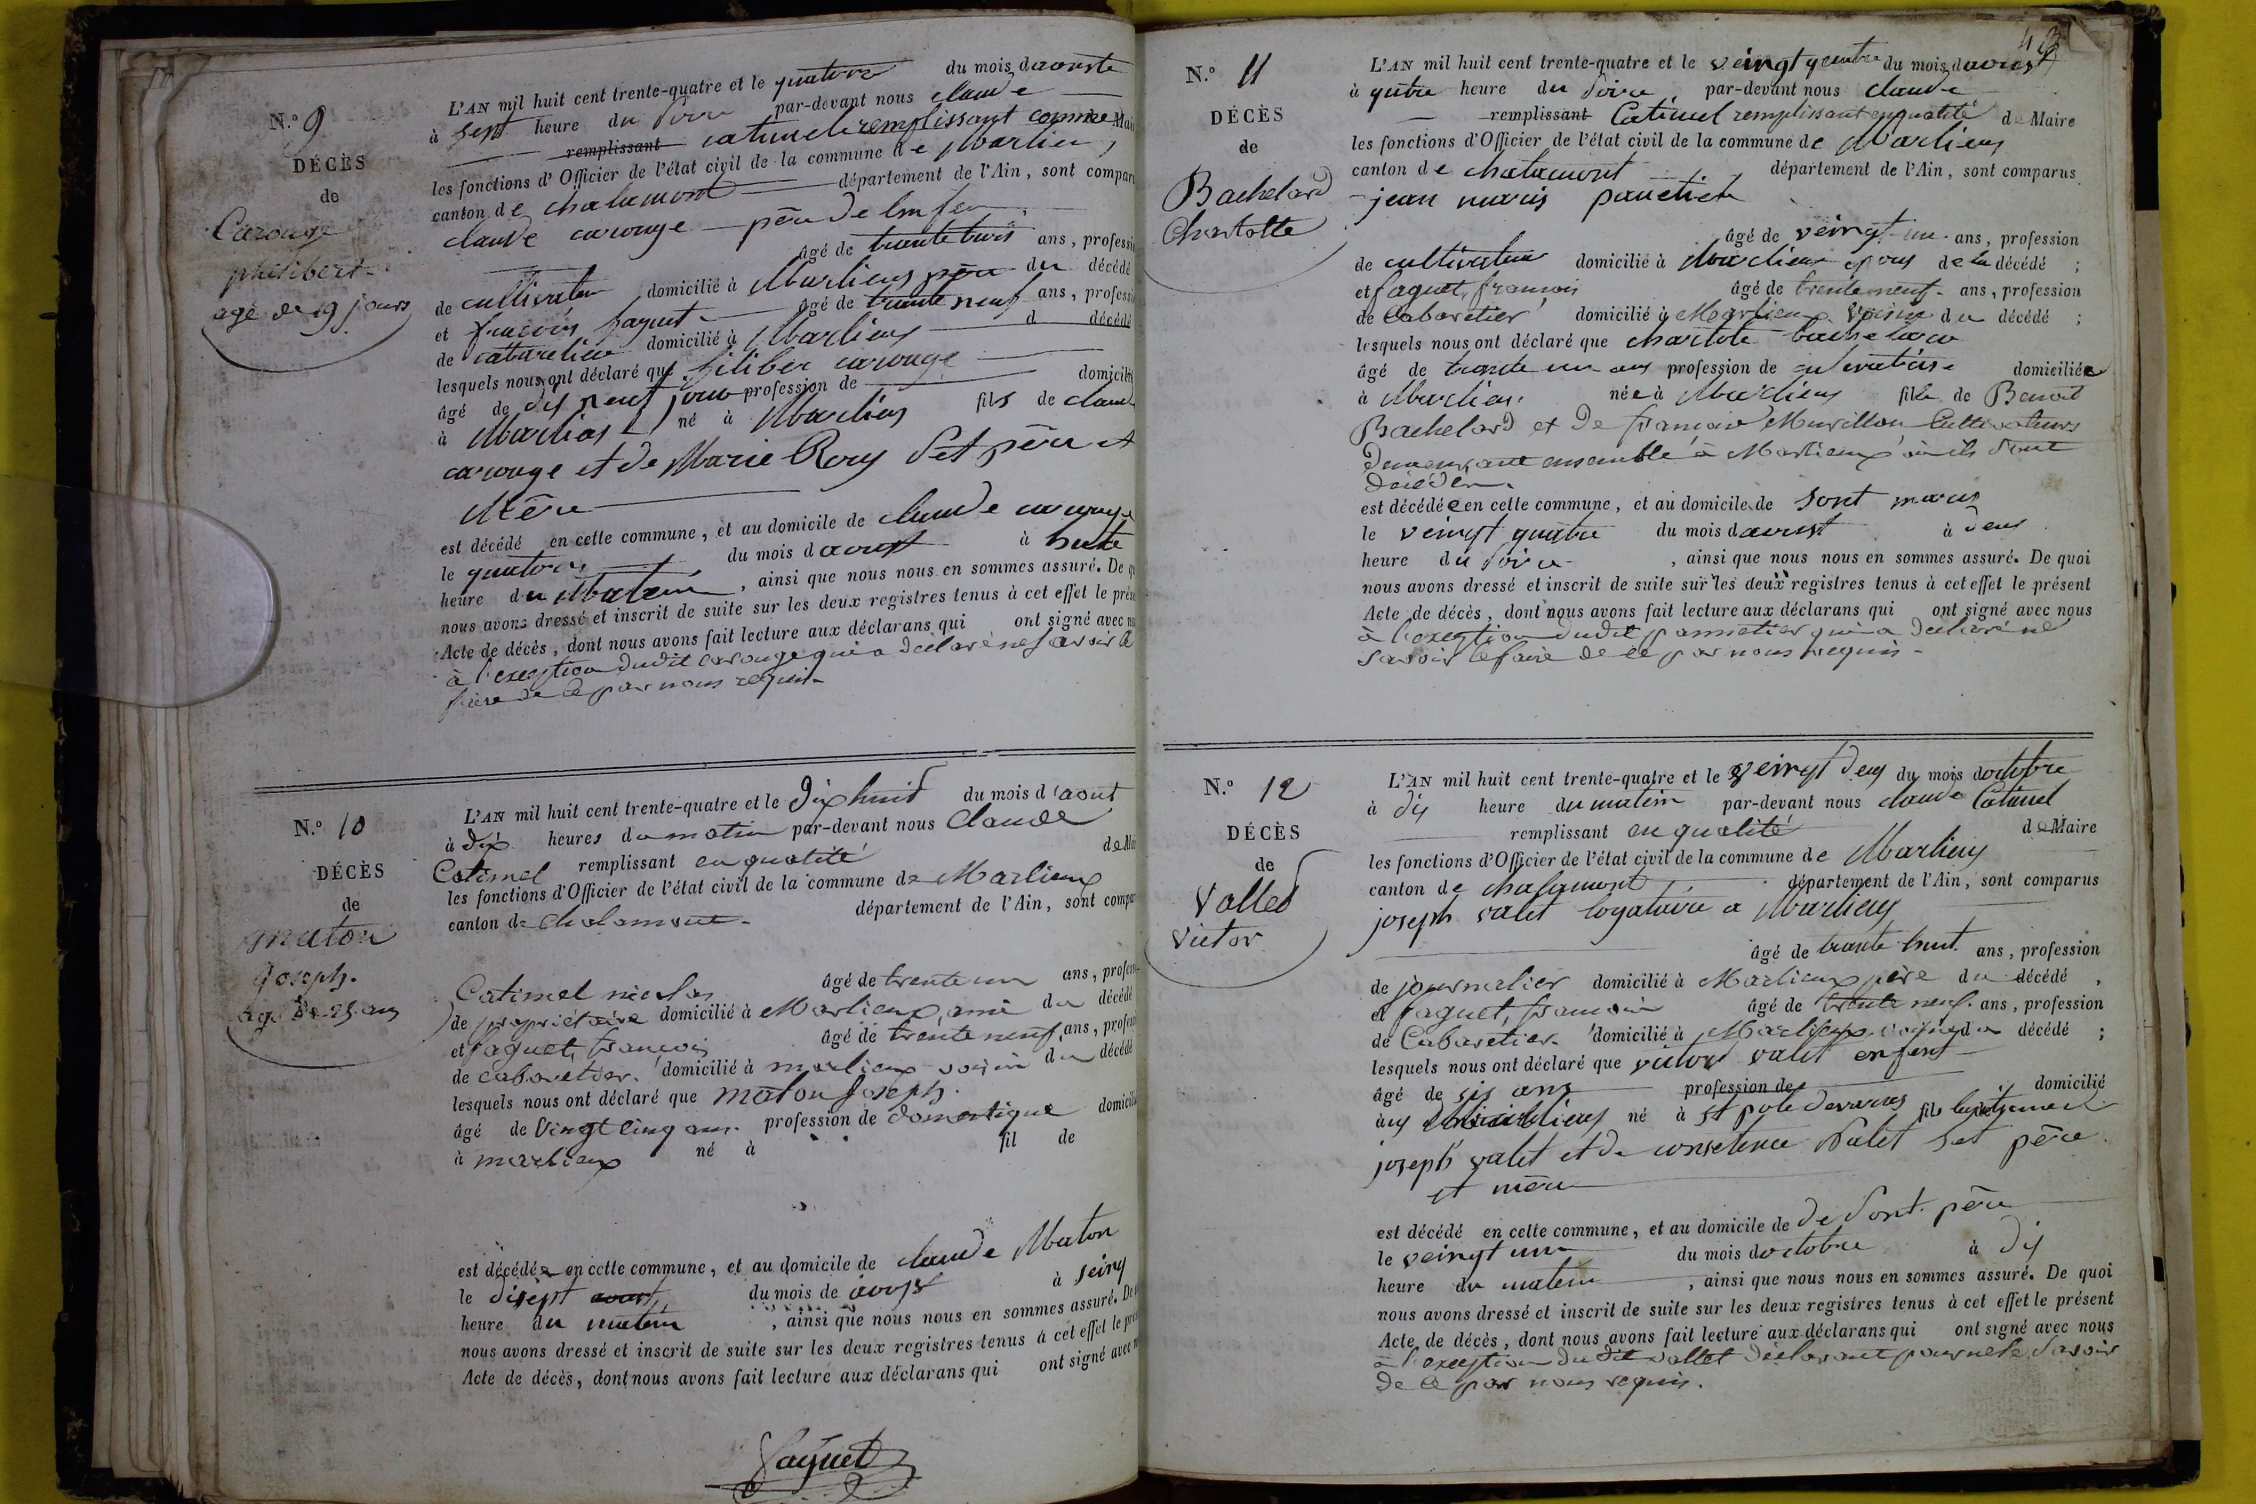 N.º 9
DÉCÈS
de
Carouge
philibert
agé de 19 jours
L'AN mil huit cent trente-quatre et le quatorze du mois d aouste
à sept heure du soire par-devant nous claude
remplissant catimel remplissant comme Mai
les fonctions d'Officier de l'état civil de la commune de Marlieu
canton de chalamont département de l'Ain, sont compar
claude carouge père de lenfen
âgé de trante trois ans, professi
de cultivateur domicilié à Marlieus père du décédé
et francois faguet âgé de trante neuf ans, professi
de cabaretier domicilié à Marlieus d décédé
lesquels nous ont déclaré que filiber carouge
âgé de dis neuf jour profession de domicilié
à Marlieus né à Marlieus fils de claude
carouge et de Marie Rouy set père et
Mère
est décédé en cette commune, et au domicile de claude carouge
le quatorze du mois d aoust à huite
heure du Matein, ainsi que nous nous en sommes assuré. De q
nous avons dressé et inscrit de suite sur les deux registres tenus à cet effet le prés
Acte de décès, dont nous avons fait lecture aux déclarans qui ont signé avec n
à l'exeption dudit carouge qui a déclaré ne savoir le
faire de ce par nous requis
N.º 10
DÉCÈS
de
maton
Joseph.
agé de 25 ans
L'AN mil huit cent trente-quatre et le dix huit du mois d'aout
à dix heures du matin par-devant nous Claude
Catimel remplissant en qualité de Mai
les fonctions d'Officier de l'état civil de la commune de Marlieux
canton de chalamont département de l'Ain, sont compar
Catimel nicolas âgé de trente un ans, profess
de propriétaire domicilié à Marlieux ami du décédé
et faguet, francois âgé de trente neuf ans, profess
de cabaretier domicilié à marlieux voisin du décédé
lesquels nous ont déclaré que maton Joseph
âgé de Vingt cinq ans profession de domestique domicilié
à marlieux né à fil de
est décédé en cette commune, et au domicile de claude Maton
le disept aoust du mois de aoust à seinq
heure du matein, ainsi que nous nous en sommes assuré. De
nous avons dressé et inscrit de suite sur les deux registres tenus à cet effet le pré
Acte de décès, dont nous avons fait lecture aux déclarans qui ont signé avec n
Faguet
N.º 11
DÉCÈS
de
Bachelard
Charlotte
L'AN mil huit cent trente-quatre et le veingt quatre du mois d aoust
à quatre heure du soire, par-devant nous claude
remplissant Catimel remplissant enqualité de Maire
les fonctions d'Officier de l'état civil de la commune de Marlieus
canton de chalamont, département de l'Ain, sont comparus
jean maris
âgé de veingt un ans, profession
de cultivateur domicilié à Marlieux epous de la décédé ;
et faguet, francois âgé de trente neuf ans, profession
de Cabaretier domicilié à Marlieux voisin du décédé ;
lesquels nous ont déclaré que charlote bachelard
âgé de trante un ans profession de cultivatrise domiciliée
à Marlieus née à Marlieus fille de Benoit
Bachelard et de francoise Murillon Cultivateurs
demeurant ensemble à Marlieux où ils sont
décédés.
est décédée en cette commune, et au domicile de sont maris
le veingt quatre du mois d aoust à deus
heure du soire, ainsi que nous nous en sommes assuré. De quoi
nous avons dressé et inscrit de suite sur les deux registres tenus à cet effet le présent
Acte de décès, dont nous avons fait lecture aux déclarans qui ont signé avec nous
à l'exeption dudit qui a déclaré ne
savoir le faire de ce par nous requis
N.º 12
DÉCÈS
de
Vallet
Victor
L'AN mil huit cent trente-quatre et le veingt deus du mois doctobre
à dis heure du matein par-devant nous claude Catimel
remplissant en qualité de Maire
les fonctions d'Officier de l'état civil de la commune de Marlieus
canton de chalamont département de l'Ain, sont comparus
joseph valet logataire a Marlieus
âgé de trante huit ans, profession
de journalier domicilié à Marlieux père du décédé,
et faguet, francois âgé de trente neuf ans, profession
de Cabaretier domicilié à Marlieux voisin du décédé ;
lesquels nous ont déclaré que victor valet enfent
âgé de sis ans profession de domicilié
à Marlieus né à st fils legitime de
joseph valet et de valet set père
et mère
est décédé en cette commune, et au domicile de de sont père
le veingt un du mois doctobre à dis
heure du matein, ainsi que nous nous en sommes assuré. De quoi
nous avons dressé et inscrit de suite sur les deux registres tenus à cet effet le présent
Acte de décès, dont nous avons fait lecture aux déclarans qui ont signé avec nous
à l'exeption du dit vallet déclarant pour ne le savoir
de ce par nous requis.